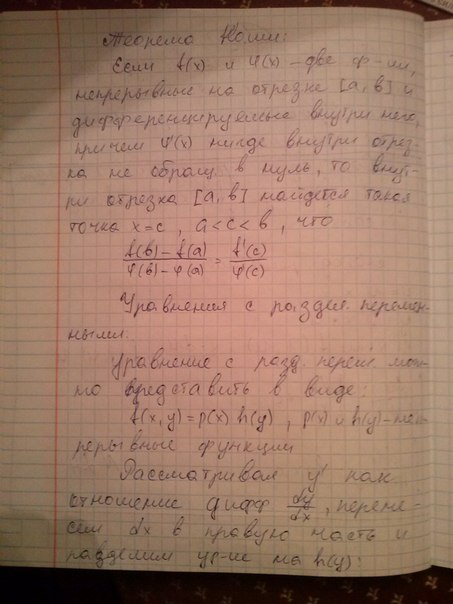 Теорема Коши:
Если f(x) и φ(x) – две ф-ии,
непрерывные на отрезке [a, b] и
дифференцируемые внутри него,
причем φ'(x) нигде внутри отрез-
ка не обращ. в нуль, то внут-
ри отрезка [a, b] найдется такая
точка x=c, a<c<b, что
f(b) – f(a) / φ(b) – φ(a) = f'(c) / φ'(c)
Уравнения с раздел. перемен-
ными.
Уравнение с разд. перем. мож-
но представить в виде:
f(x, y) = p(x) h(y), p(x) и h(y) – неп-
рерывные функции
Рассматривая y' как
отношение дифф dy/dx, перене-
сем dx в правую часть и
разделим ур-ие на h(y):